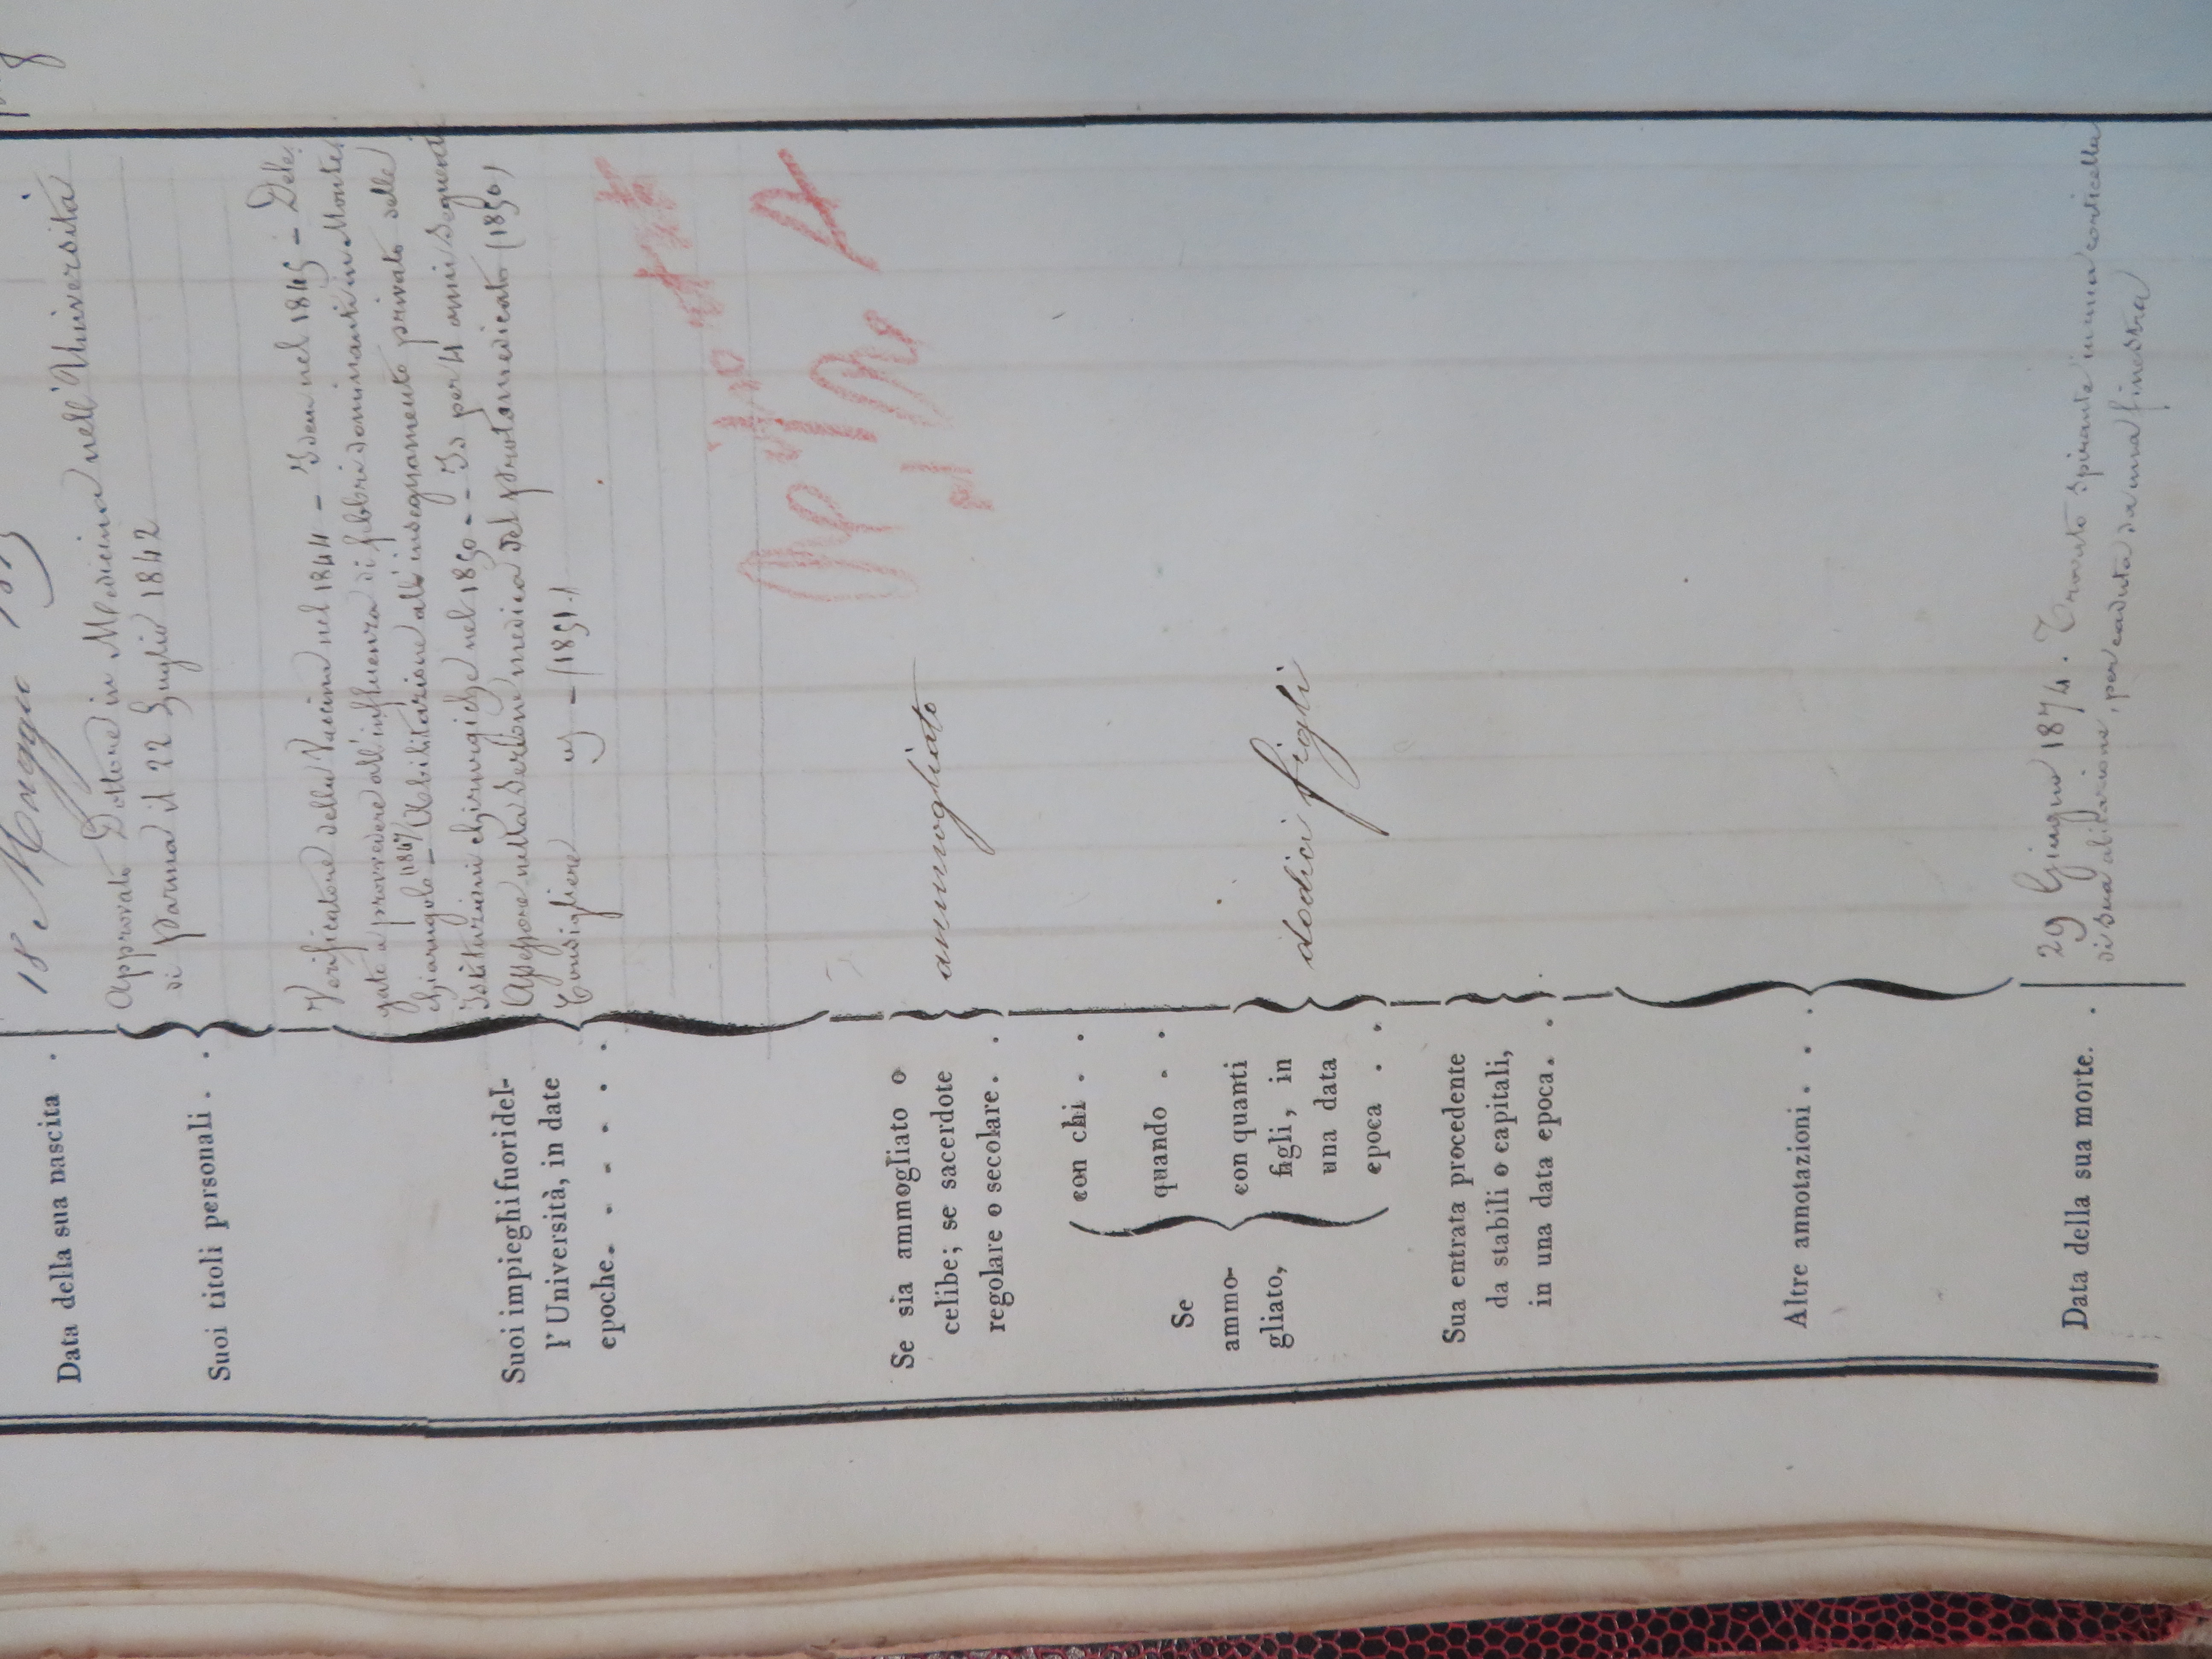 Data della sua nascita .
18 e Maggio
Suoi titoli personali . .
Approvato Dottore in Medicina nell'Università
di Parma il 22 Luglio 1842
Suoi impieghi fuori del-
l'Università, in date
epoche. . . . . .
Verificatore della Vaccina nel 1844 - Idem nel 1845 - Dele
gato a provvedere all'influenza di febbri dominanti in Monte
chiarugolo - (1847) Abilitazione all'insegnamento privato delle
Istituzioni chirurgiche nel 1850 - Id per 4 anni seguenti
Assessore nella Sezione medica del protomedicato (1850)
Consigliere - (1851)
Se sia ammogliato o
celibe; se sacerdote
regolare o secolare. . .
ammogliato
Se
ammo-
gliato,
con chi . .
quando . .
con quanti
figli, in
una data
epoca . .
dodici figli
Sua entrata procedente
da stabili o capitali,
in una data epoca. .
Altre annotazioni . . .
Data della sua morte. .
29 Giugno 1874. Trovato spirante in una corticella
di sua abitazione, per caduta da una finestra